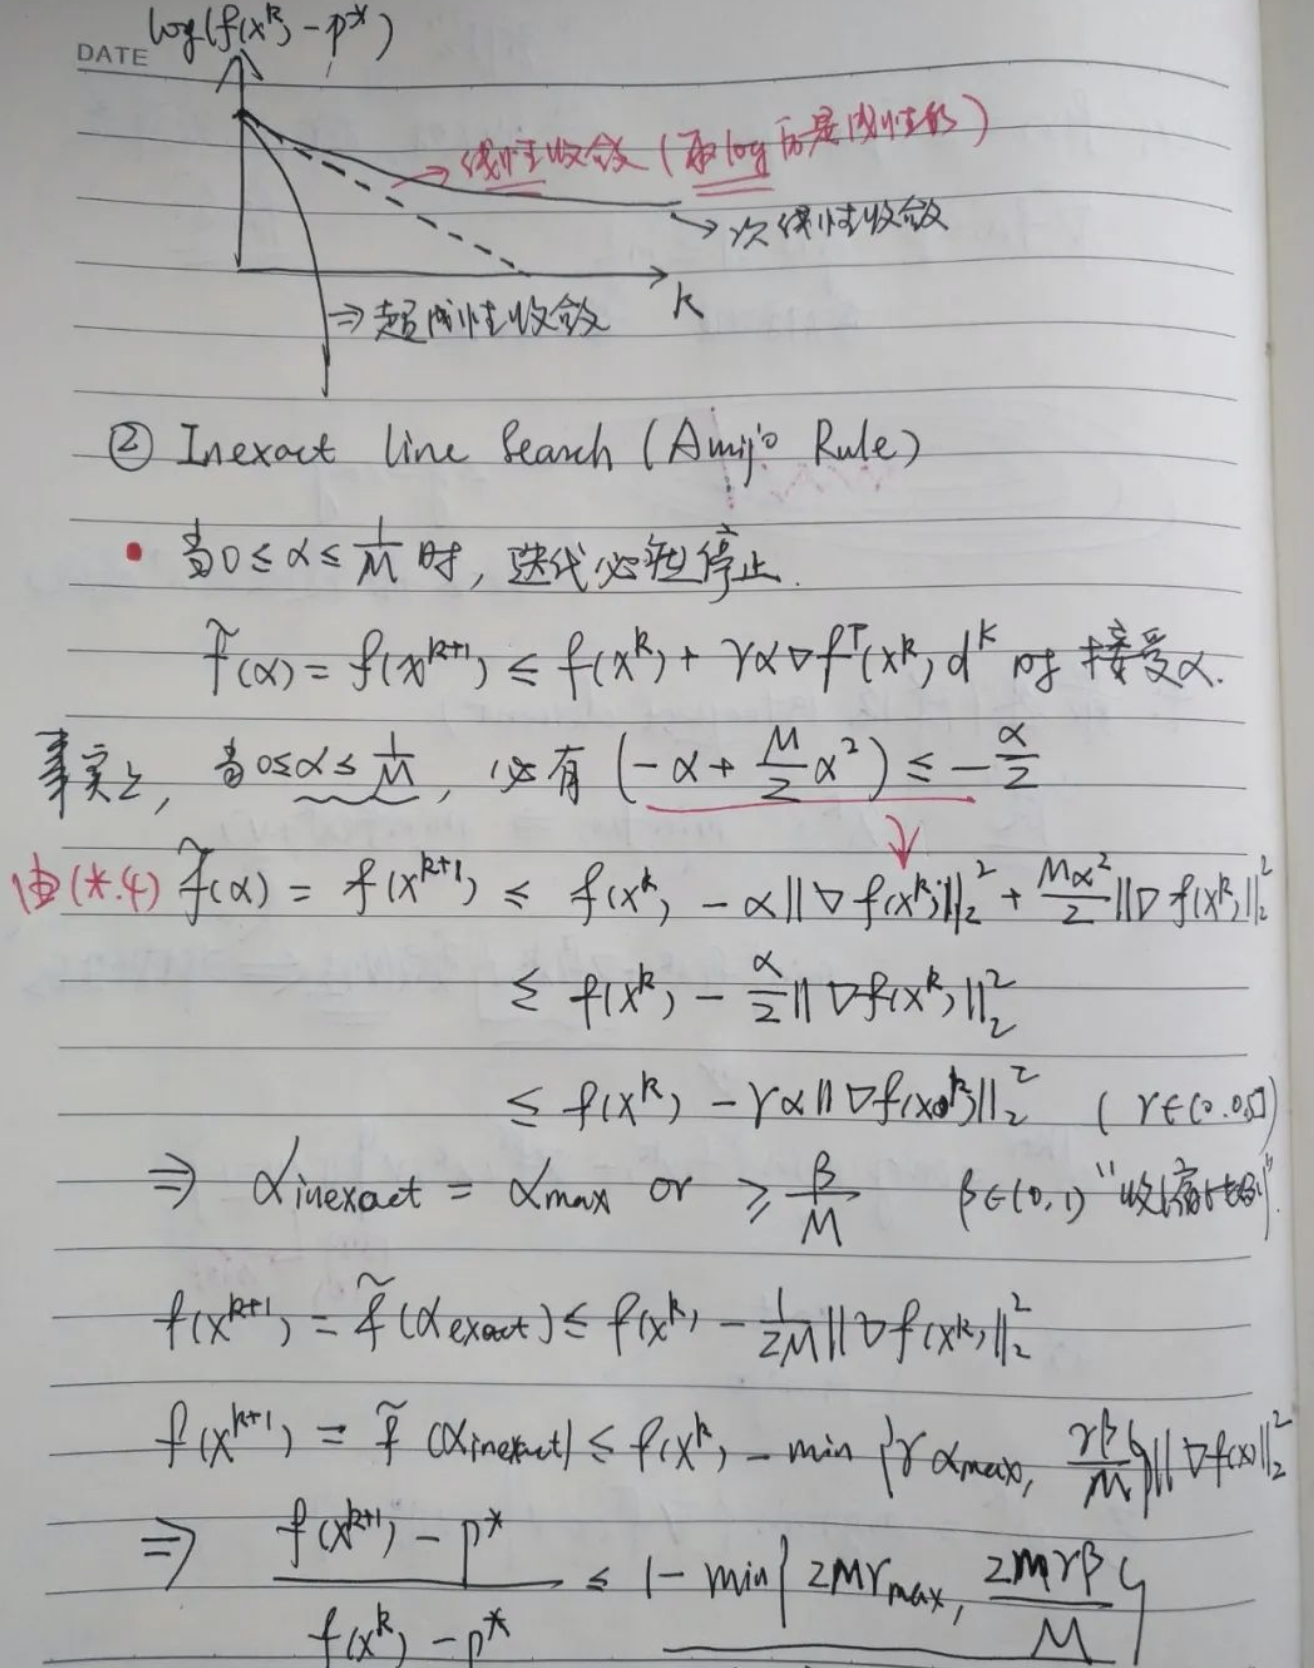 DATE
log(f(x^k) - p^*)
线性收敛（取log后是线性的）
→ 次线性收敛
k
⇒ 超线性收敛
② Inexact line Search (Amijo Rule)
• 当 0 ≤ α ≤ 1/M 时，迭代必然停止.
f̃(α) = f(x^{k+1}) ≤ f(x^k) + γα∇f^T(x^k) d^k 时接受α.
事实上，当 0≤α≤ 1/M，必有 (-α + M/2 α²) ≤ - α/2
由(*.4) f̃(α) = f(x^{k+1}) ≤ f(x^k) - α||∇f(x^k)||_2^2 + Mα²/2 ||∇f(x^k)||_2^2
≤ f(x^k) - α/2 ||∇f(x^k)||_2^2
≤ f(x^k) - γα||∇f(x^k)||_2^2 ( γ∈(0.0.5])
⇒ α_inexact = α_max or ≥ β/M β∈(0,1) "收缩比例".
f(x^{k+1}) = f̃(α_exact) ≤ f(x^k) - 1/2M ||∇f(x^k)||_2^2
f(x^{k+1}) = f̃(α_inexact) ≤ f(x^k) - min {γα_max, γβ/M} ||∇f(x)||_2^2
⇒ (f(x^{k+1}) - p^*) / (f(x^k) - p^*) ≤ 1 - min{ 2Mγ_max, 2mγβ/M }